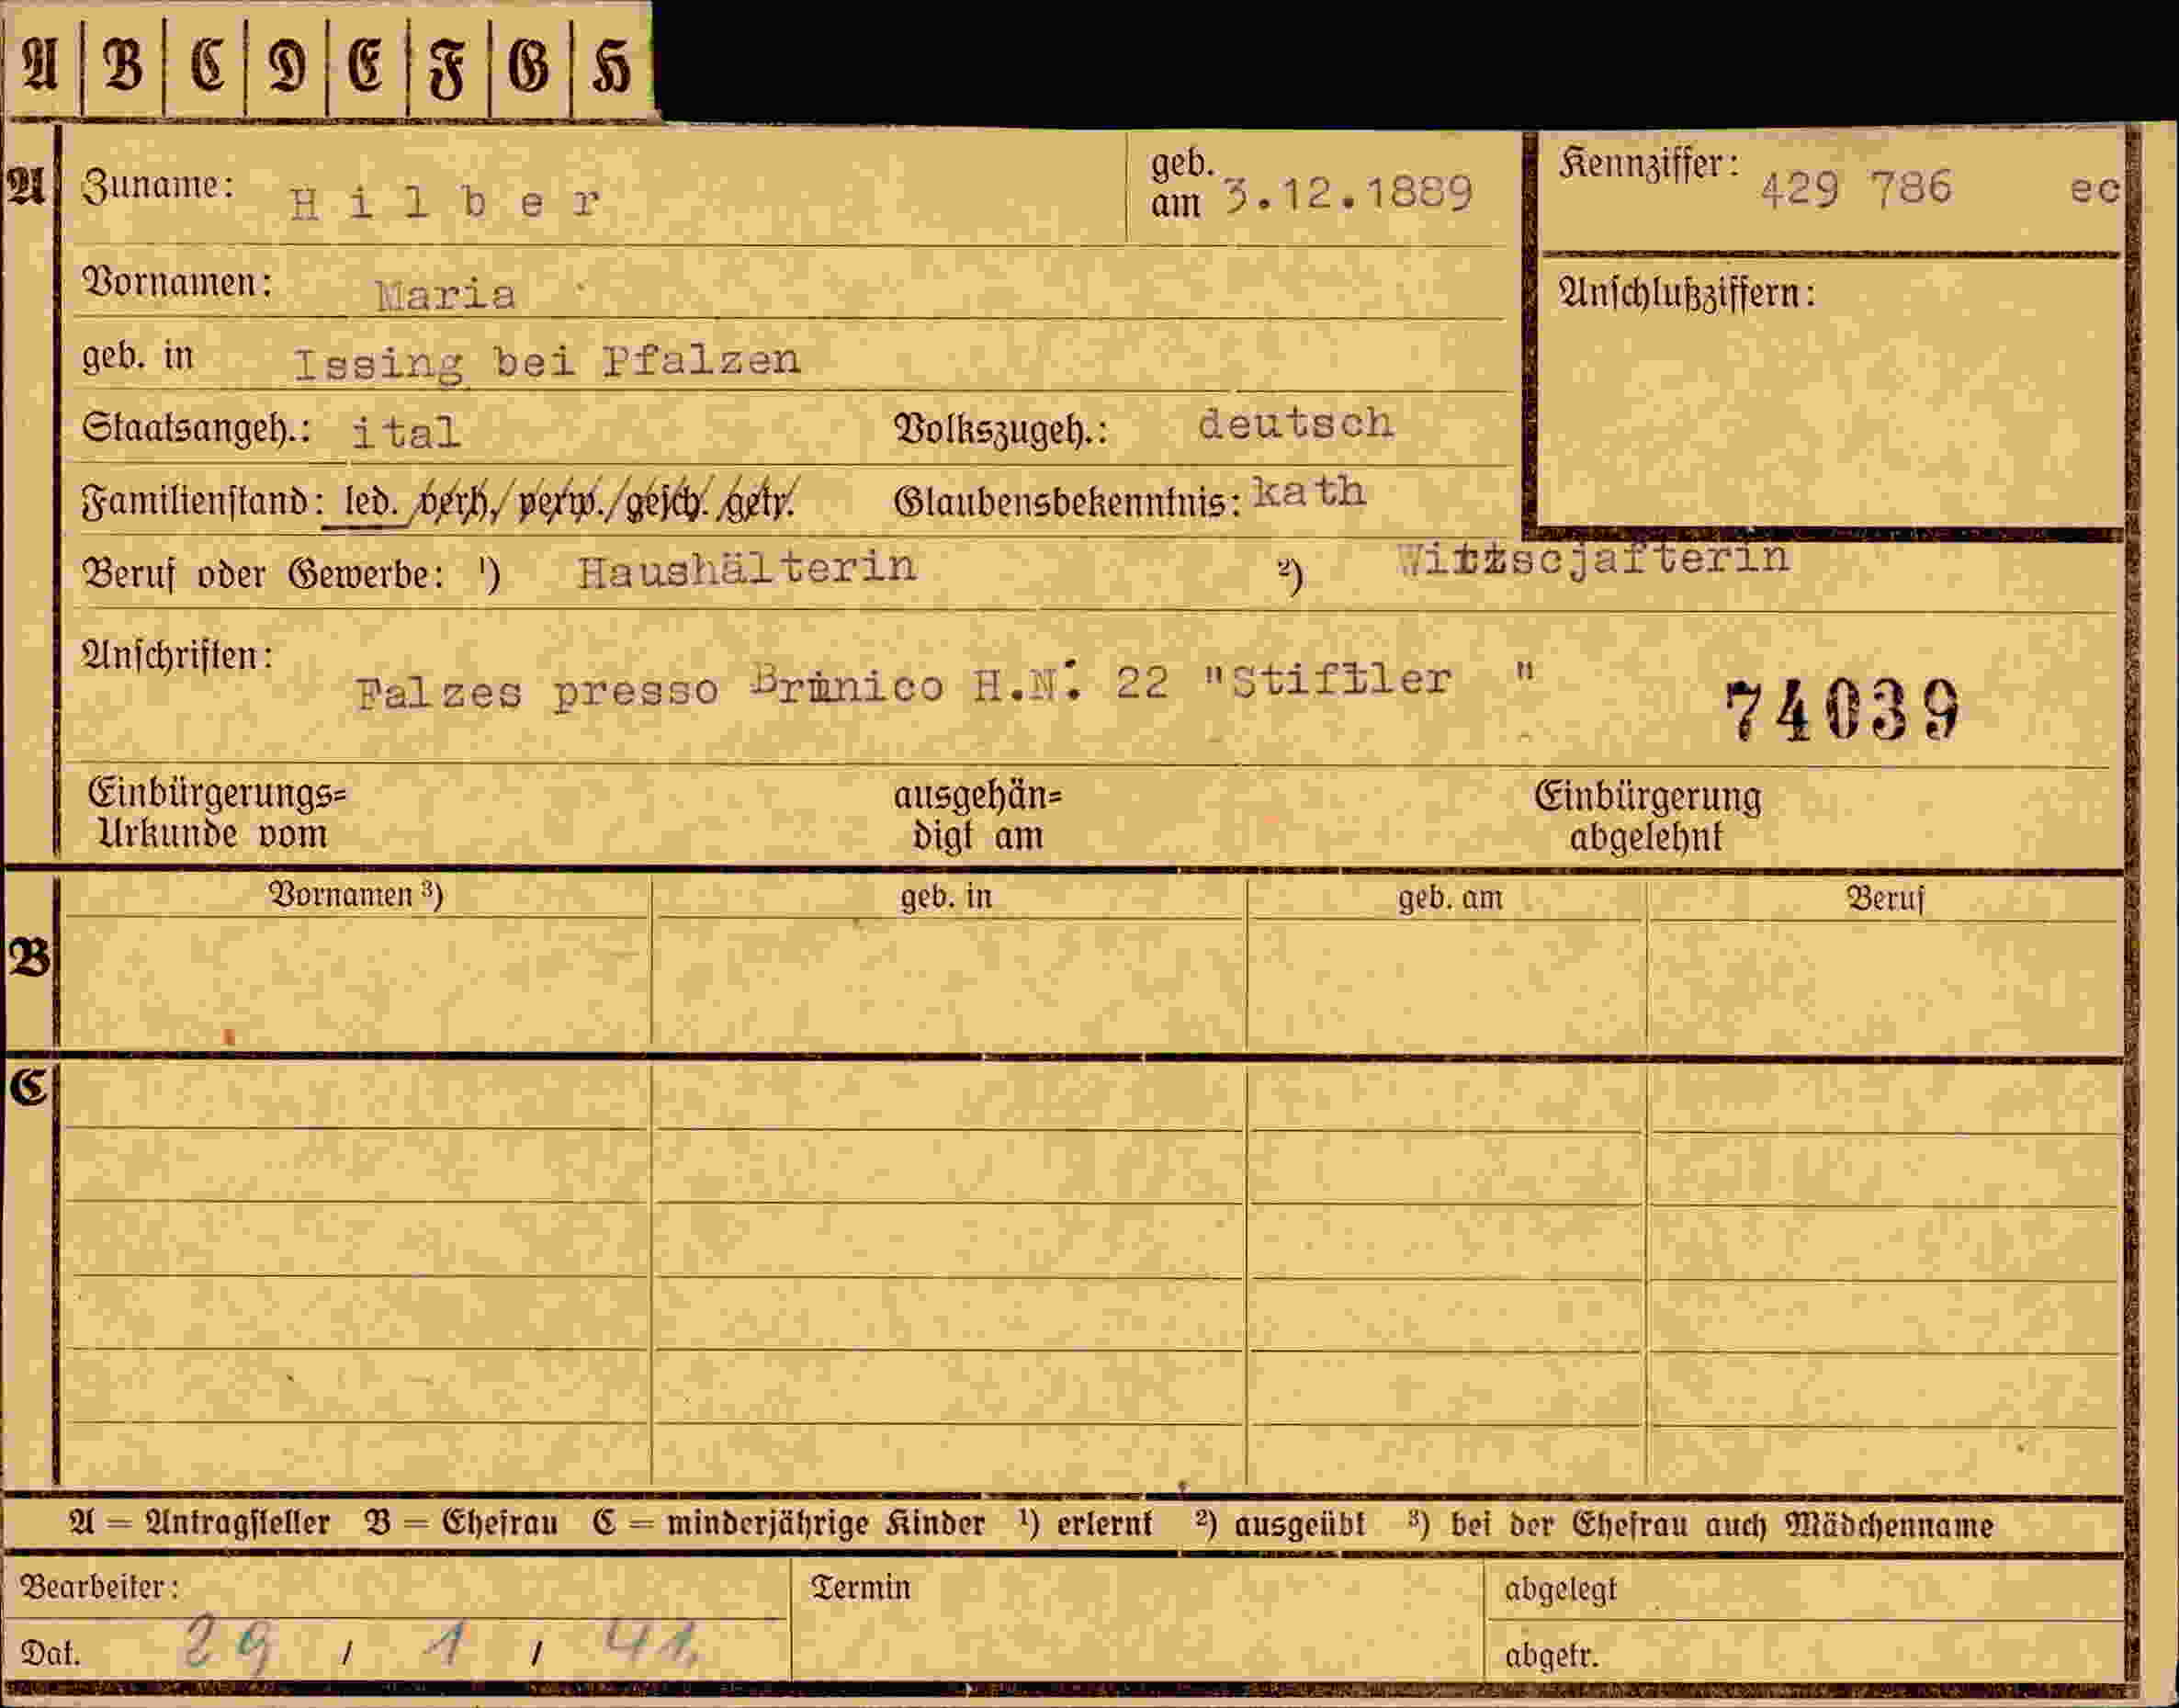 A | B | C | D | E | F | G | H
A Zuname: Hilber geb. am 3.12.1889 Kennziffer: 429 786 ec
Vornamen: Maria Anschlußziffern:
geb. in Issing bei Pfalzen
Staatsangeh.: ital Volkszugeh.: deutsch
Familienstand: led. / verh. / verw. / gesch. / getr. Glaubensbekenntnis: kath
Beruf oder Gewerbe: ¹) Haushälterin ²)
Anschriften: Falzes presso Brunico H.N. 22 "Stiftler "
74039
Einbürgerungs= ausgehän= Einbürgerung
Urkunde vom digt am abgelehnt
Vornamen ³) geb. in geb. am Beruf
B
C
A = Antragsteller B = Ehefrau C = minderjährige Kinder ¹) erlernt ²) ausgeübt ³) bei der Ehefrau auch Mädchenname
Bearbeiter: Termin abgelegt
Dat. 29 / 1 / 41. abgetr.